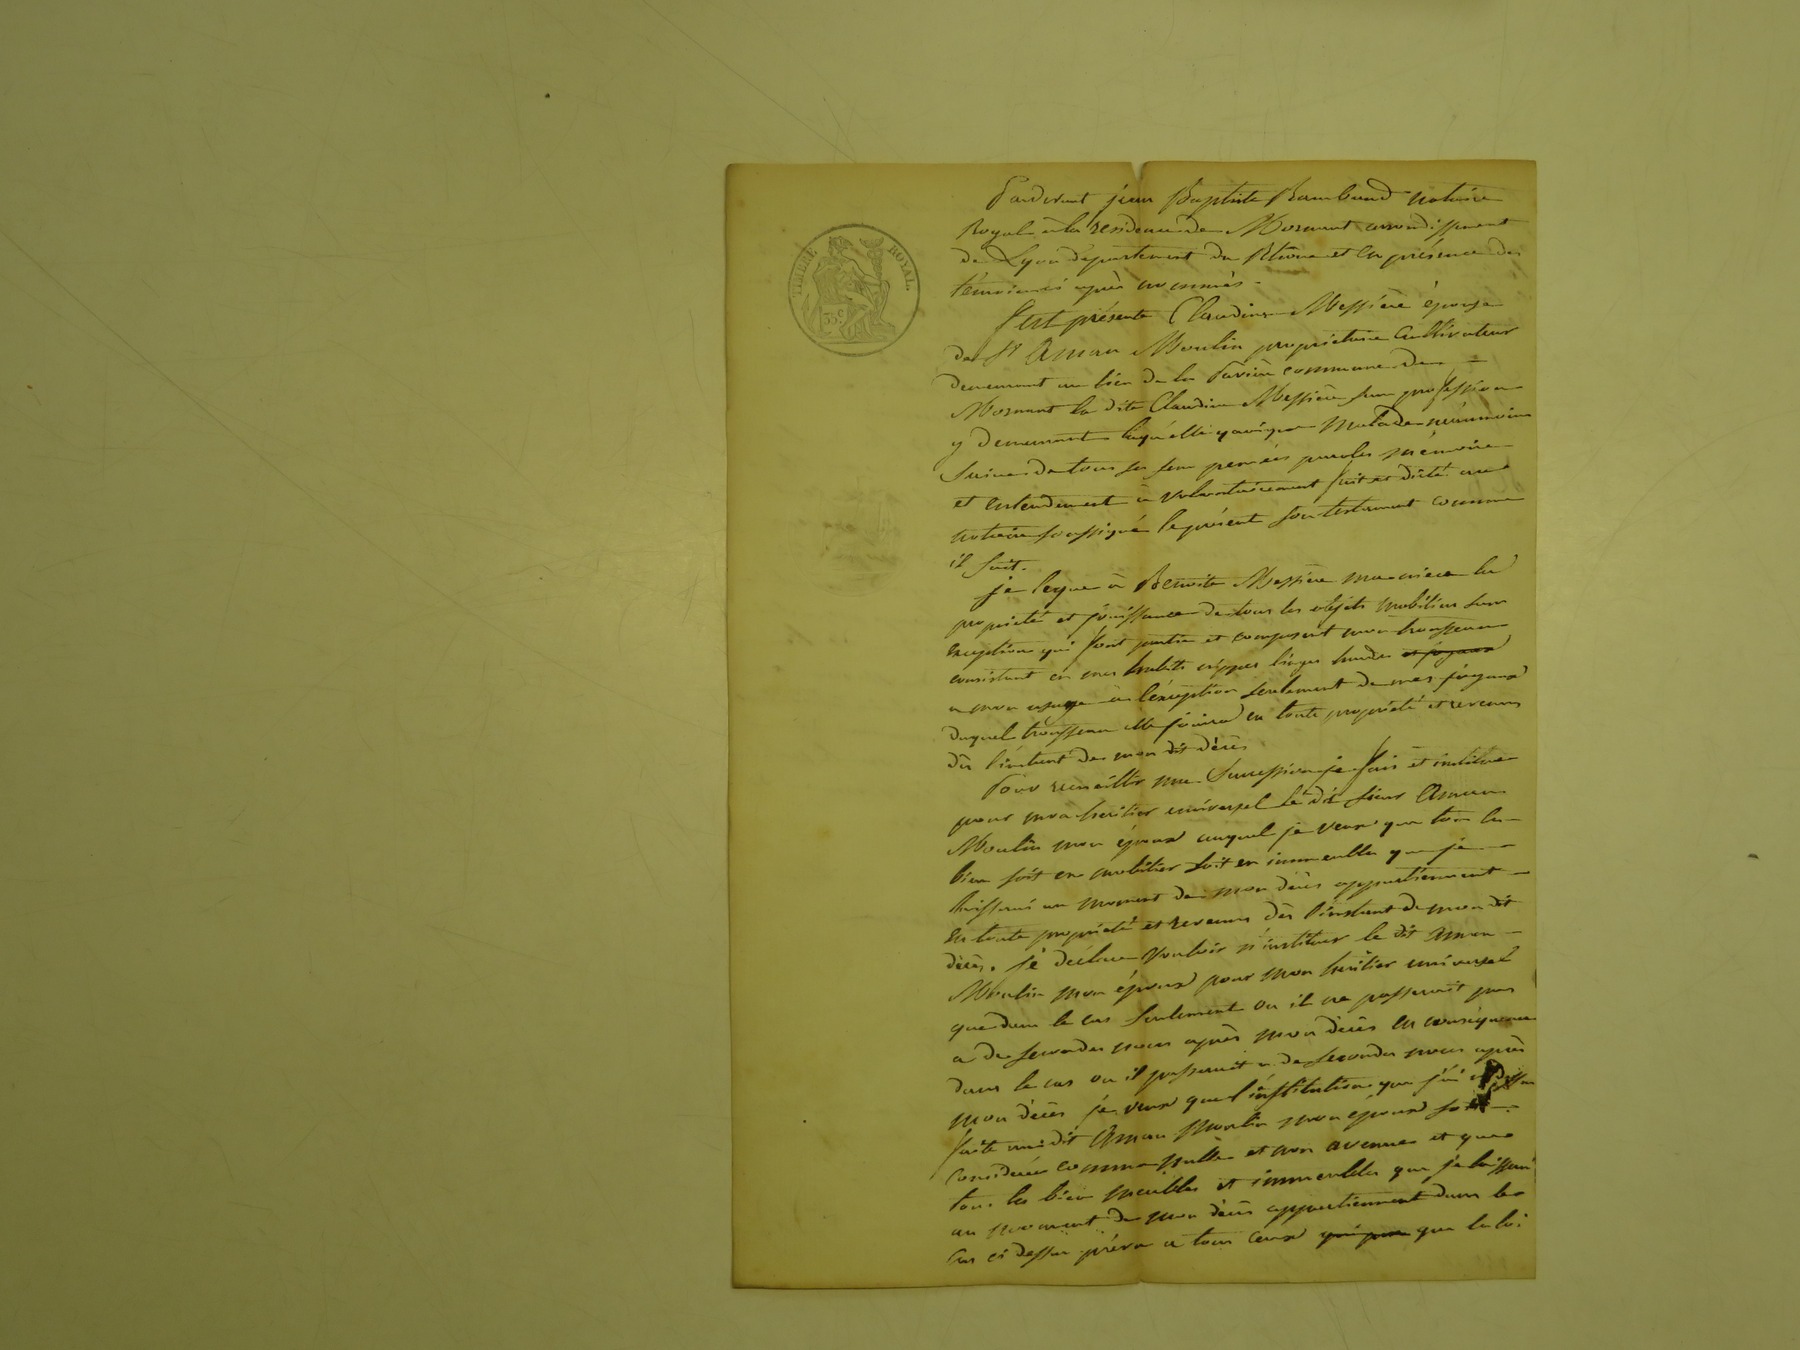 TIMBRE ROYAL.
35 c
Pardevant jean Baptiste Rambaud notaire
Royal à la residence de Mornant arrondissement
de Lyon departement du Rhône et en présence des
témoins ci après nommés.
S'est présenté Claudine Messière épouse
de Sr Aman Moulin propriétaire Cultivateur
demeurant au lieu de la commune de
Mornant la dite Claudine Messière sans profession
y demeurant laquelle quoique malade néanmoins
saine de tous ses sens pensées paroles mémoire
et entendement a volontairement fait et dicté au
notaire soussigné le présent son testament comme
il suit.
je legue à Benoite Messière ma niece la
propriété et jouissance de tous les objets mobiliers sans
exception qui font partie et composent mon trousseau
consistant en mes habits nippes linges hardes et joyaux
a mon usage à l'exception seulement de mes joyaux
duquel trousseau elle jouira en toute propriété et revenus
dès l'instant de mon dit décès
Pour recueillir ma succession je fais et institue
pour mon heritier universel le dit sieur Aman
Moulin mon époux auquel je veux que tous les
bien soit en mobilier soit en immeubles que je
laisserai au moment de mon décès appartiennent
en toute propriété et revenus dès l'instant de mon dit
décès. je déclare vouloir n'instituer le dit Aman
Moulin mon époux pour mon heritier universel
que dans le cas seulement ou il ne passerait pas
a de secondes noces après mon décès en conséquence
dans le cas ou il passerait a de secondes noces après
mon décès je veux que l'institution que j'ai
faite au dit Aman Moulin mon époux soit
considérée comme nulle et non avenue et que
tous les bien meubles et immeubles que je laisserai
au moment de mon décès appartiennent dans le
cas ci dessus prévu a tous ceux que la loi